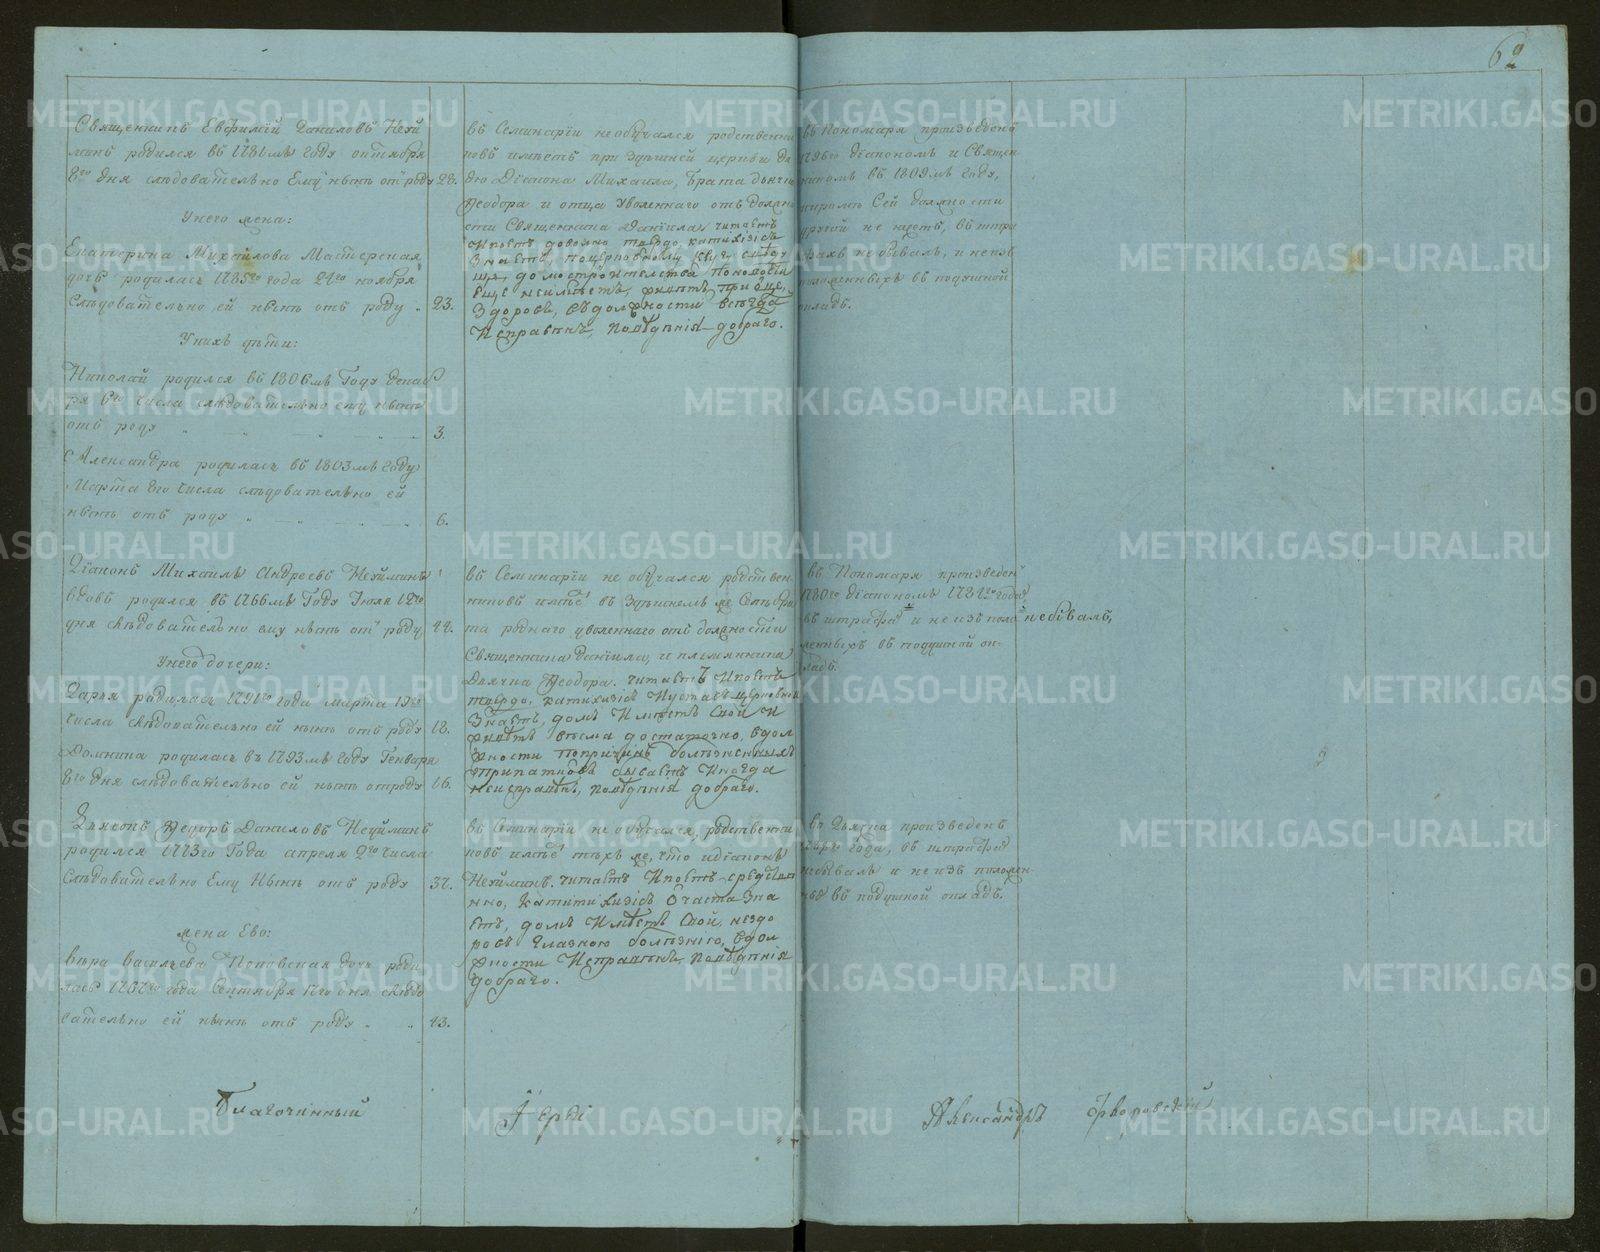 Священникъ Евфимій Даниловъ Неуй
минъ родился въ 1781мъ году октября
8го дня слѣдовательно Ему нынѣ отъ роду 28.
У него жена:
Екатерина Михайлова Мастерская
дочь родилась 1785го года 24го ноября
Слѣдовательно ей нынѣ отъ роду 23.
У нихъ дѣти:
Николай родился въ 1806мъ Году декаб
ря 6го Числа слѣдовательно ему нынѣ
отъ роду 3.
Александра родилась въ 1803мъ году
Марта 8го числа слѣдовательно ей
нынѣ отъ роду 6.
Діаконъ Михаилъ Андреевъ Неуйминъ
вдовъ родился въ 1766мъ Году Іюля 12го
дня слѣдовательно ему нынѣ отъ роду 44.
У него дочери:
Дарья родилась 1791го года марта 19го
числа слѣдовательно ей нынѣ отъ роду 18.
Домнина родилась въ 1793мъ году Генваря
8го дня слѣдовательно ей нынѣ отроду 16.
Дьяконъ Федоръ Даниловъ Неуйминъ
родился 1773го Года апреля 9го числа
Слѣдовательно Ему Нынѣ отъ роду 37.
жена Ево:
Вѣра Васильева Поповская дочь роди
лась 1767го года Сентября 17го дня слѣдо
вательно ей нынѣ отъ роду 43.
въ Семинаріи необучался родственни
ковъ имѣетъ при здѣшней церкви дя
дю Діакона Михаила, брата дьячка
Феодора и отца уволеннаго отъ должно
сти Священника Даніила, читаетъ
И поетъ довольно твердо, катихізісъ
Знаетъ,
домостроителства
Еще неимѣетъ, живетъ при отце,
Здоровъ, въ должности всегда
Исправенъ, поведѣнія добраго.
въ Семинаріи не обучался родствен
никовъ имѣе въ здѣшнемъ же Селѣ бра
та роднаго уволеннаго отъ должности
Священника Даніила, и племянника
Дьячка Феодора. читаетъ И поетъ
твердо, катихизісъ И уставъ церковный
Знаетъ, домъ Имѣетъ Свой И
живетъ весьма достаточно, в дол
жности по причинѣ болѣзненныхъ
припатковъ бываетъ Иногда
неисправенъ, поведѣнія добраго.
въ Семинаріи не обучался, родственни
ковъ имѣе тѣхъ же, что и діаконъ
Неуйминъ. читаетъ И поетъ средствен
нно, катитихизісъ Очасти Зна
Етъ, домъ Имѣетъ Свой, нездо
ровъ Глазною болѣзнію, в дол
жности Исправенъ, поведѣнія
добраго.
69
въ Пономаря произведенъ
1796го діакономъ и Священ
никомъ въ 1809мъ году,
кромѣ Сей должности
другой не имѣетъ, въ штра
фахъ не бывалъ, и неизъ
положенныхъ въ подушной
окладъ.
въ Пономаря произведен
1780го діакономъ 1784го года,
въ штрафѣ и не изъ поло небывалъ,
женныхъ въ подушной ок-
ладъ.
во Дьячка произведенъ
года, въ штрафѣ
небывалъ и не изъ положен
ныхъ въ подушной окладъ.
Благочинный Іерей Александръ Флоровскій